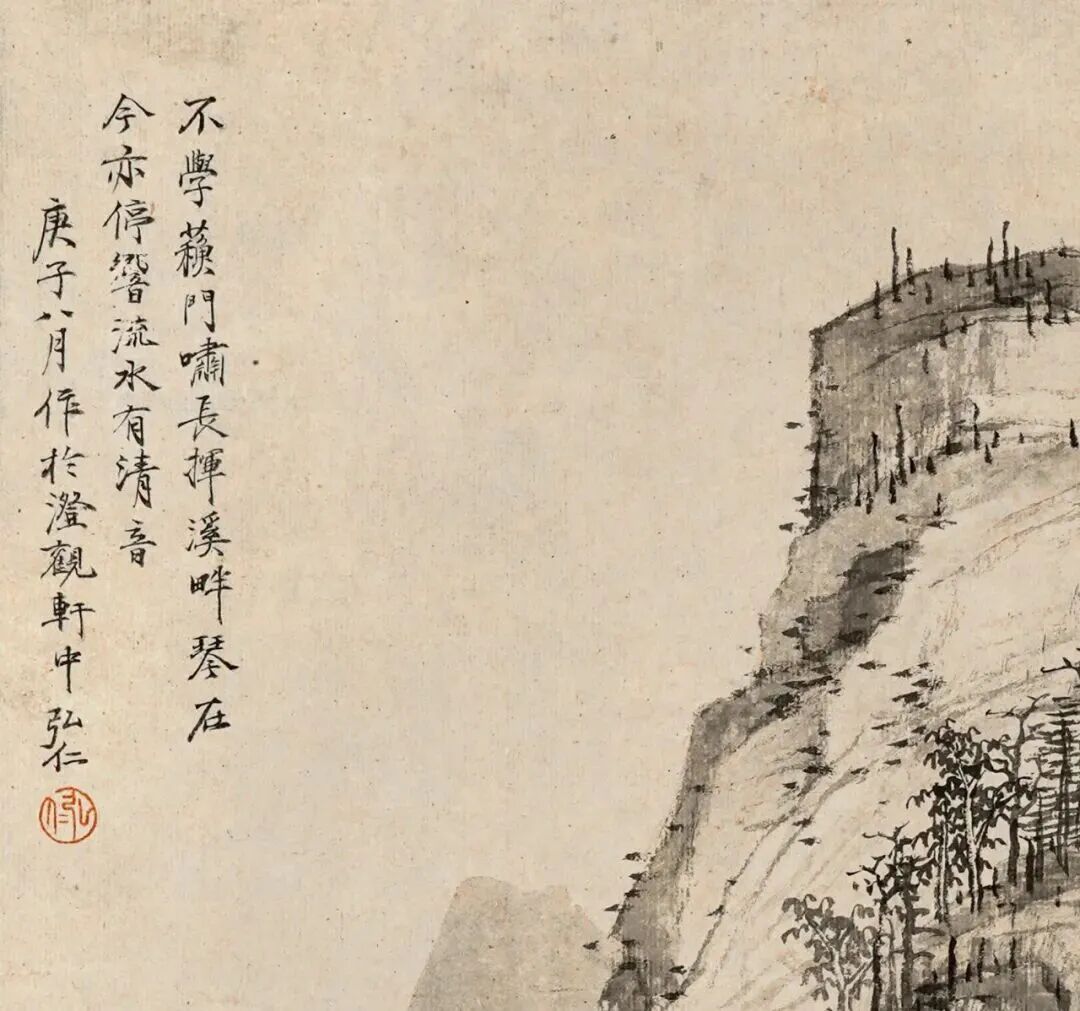 不學蘓門嘯長揮溪畔琴在
今亦停響流水有清音
庚子八月作於澄觀軒中弘仁
弘仁